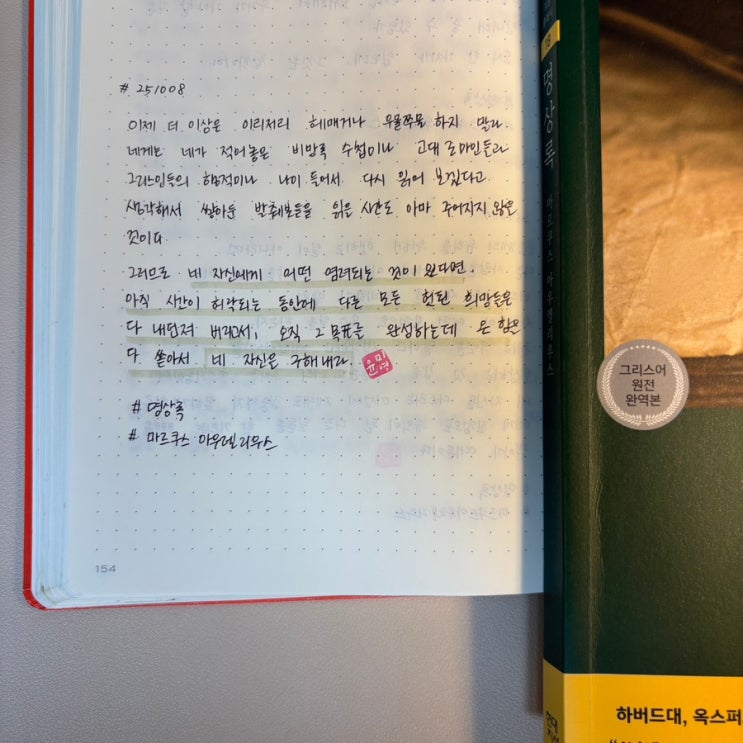 # 251008
이제 더 이상은 이리저리 헤매거나 우물쭈물 하지 말라.
네게는 네가 적어놓은 비망록 수첩이나 고대 로마인들과
그리스인들의 행적이나 나이 들어서 다시 읽어 보겠다고
생각해서 쌓아둔 발췌본들을 읽을 시간도 아마 주어지지 않을
것이다.
그러므로 네 자신에게 어떤 염려되는 것이 있다면,
아직 시간이 허락되는 동안에 다른 모든 헛된 희망들은
다 내던져 버리고서, 오직 그 목표를 완성하는데 온 힘을
다 쏟아서 네 자신을 구해내라.
# 명상록
# 마르쿠스 아우렐리우스
154
명상록
마르쿠스 아우렐리우스
그리스어
원전
완역본
현대
지성
하버드대, 옥스퍼